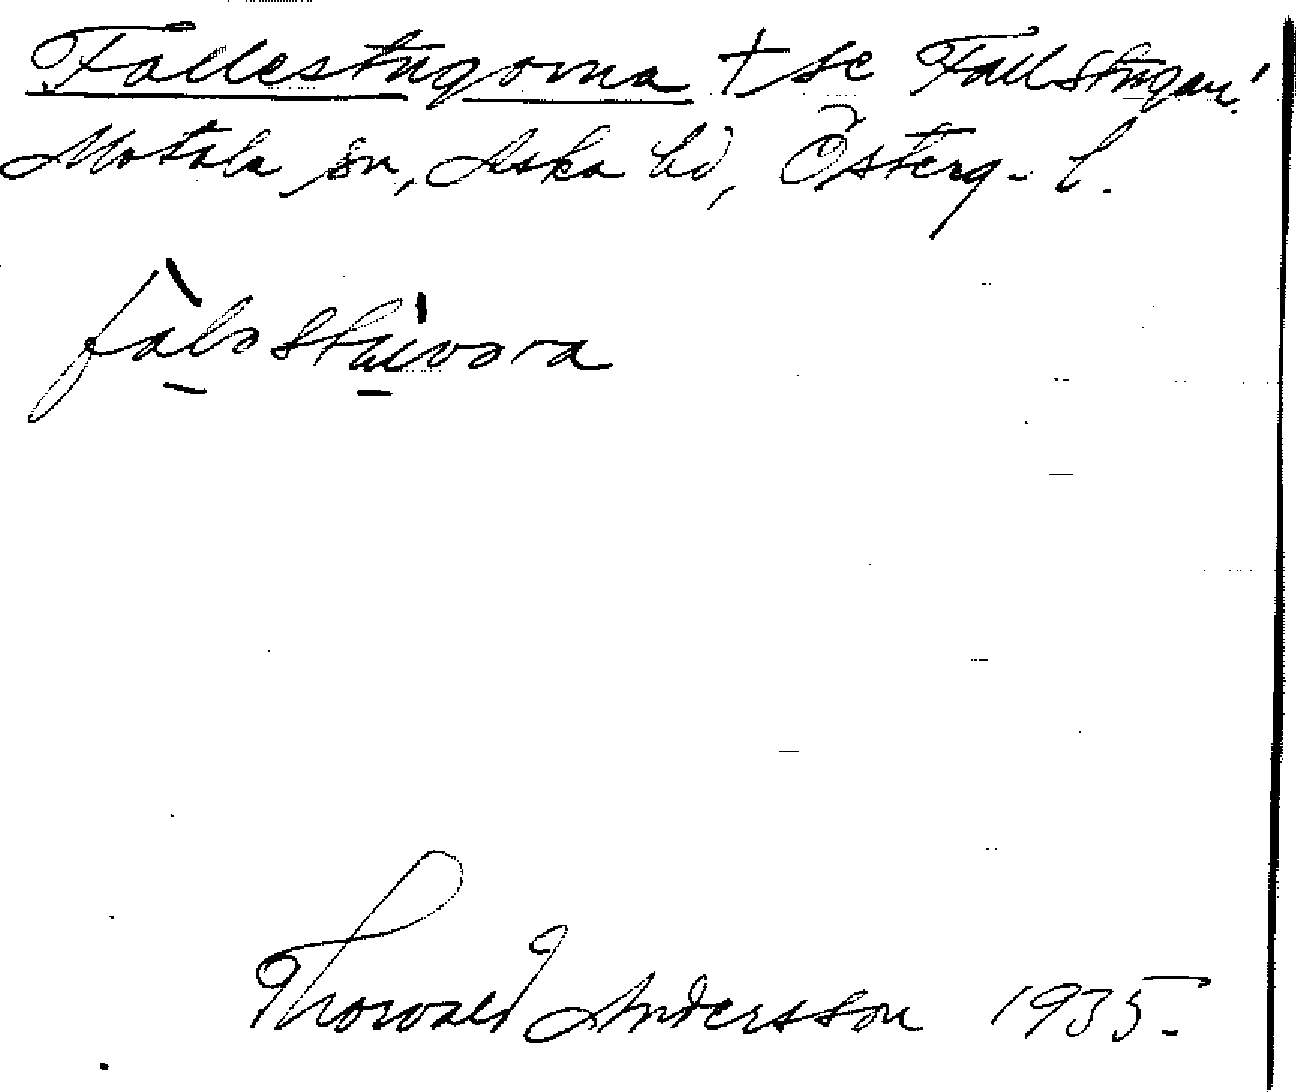 Fallestugorna † se Fallstugan!
Motala sn, Aska hd, Österg. l.
falestuwora
Thorvald Andersson 1935.